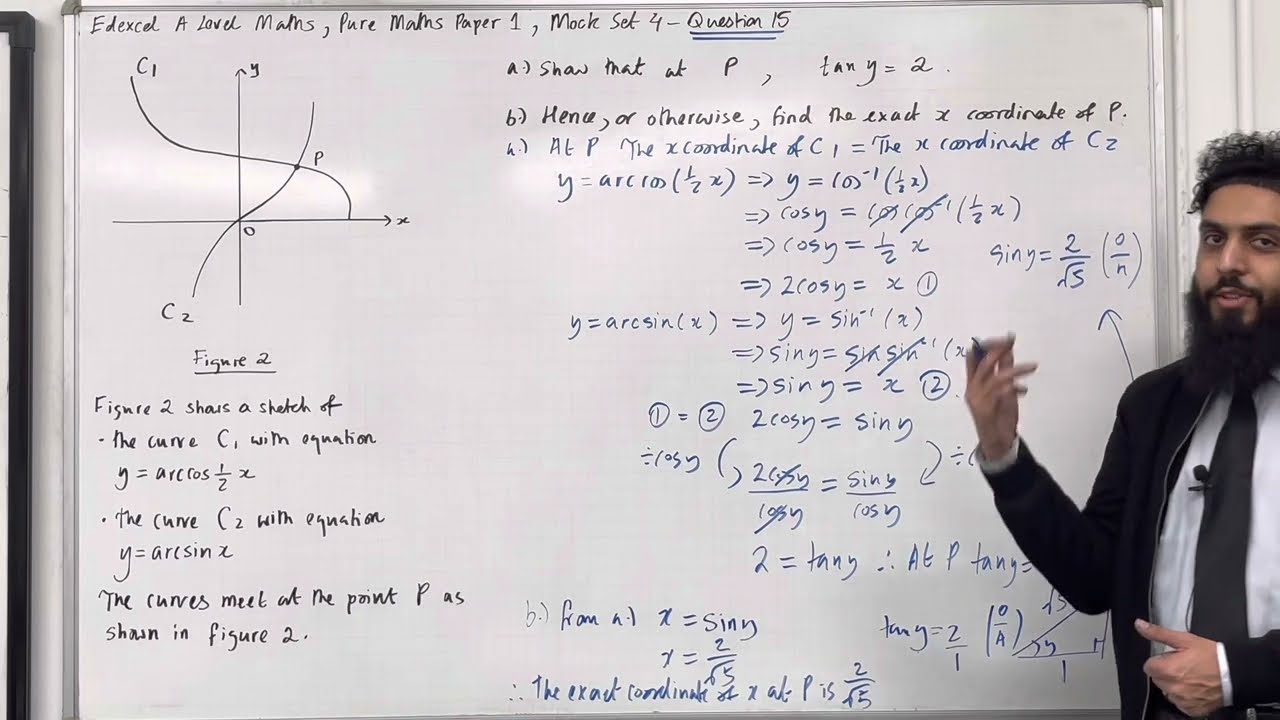 Edexcel A Level Maths, Pure Maths Paper 1, Mock Set 4 – Question 15
C1
y
P
O
x
C2
Figure 2
Figure 2 shows a sketch of
· the curve C1 with equation
y = arccos ½ x
· the curve C2 with equation
y = arcsin x
The curves meet at the point P as
shown in figure 2.
a.) Show that at P, tan y = 2.
b) Hence, or otherwise, find the exact x coordinate of P.
a.) At P The x coordinate of C1 = The x coordinate of C2
y = arccos(½ x) => y = cos⁻¹(½ x)
=> cos y = cos cos⁻¹(½ x)
=> cos y = ½ x
=> 2cos y = x ①
y = arcsin(x) => y = sin⁻¹(x)
=> sin y = sin sin⁻¹(x
=> sin y = x ②.
① = ② 2cos y = sin y
÷cos y ( 2cos y/cos y = sin y/cos y ) ÷
2 = tan y ∴ At P tan y =
b.) from a.) x = sin y
x = 2/√5
∴ The exact coordinate of x at P is 2/√5
sin y = 2/√5 (O/H)
tan y = 2/1 (O/A)
√5
y
1